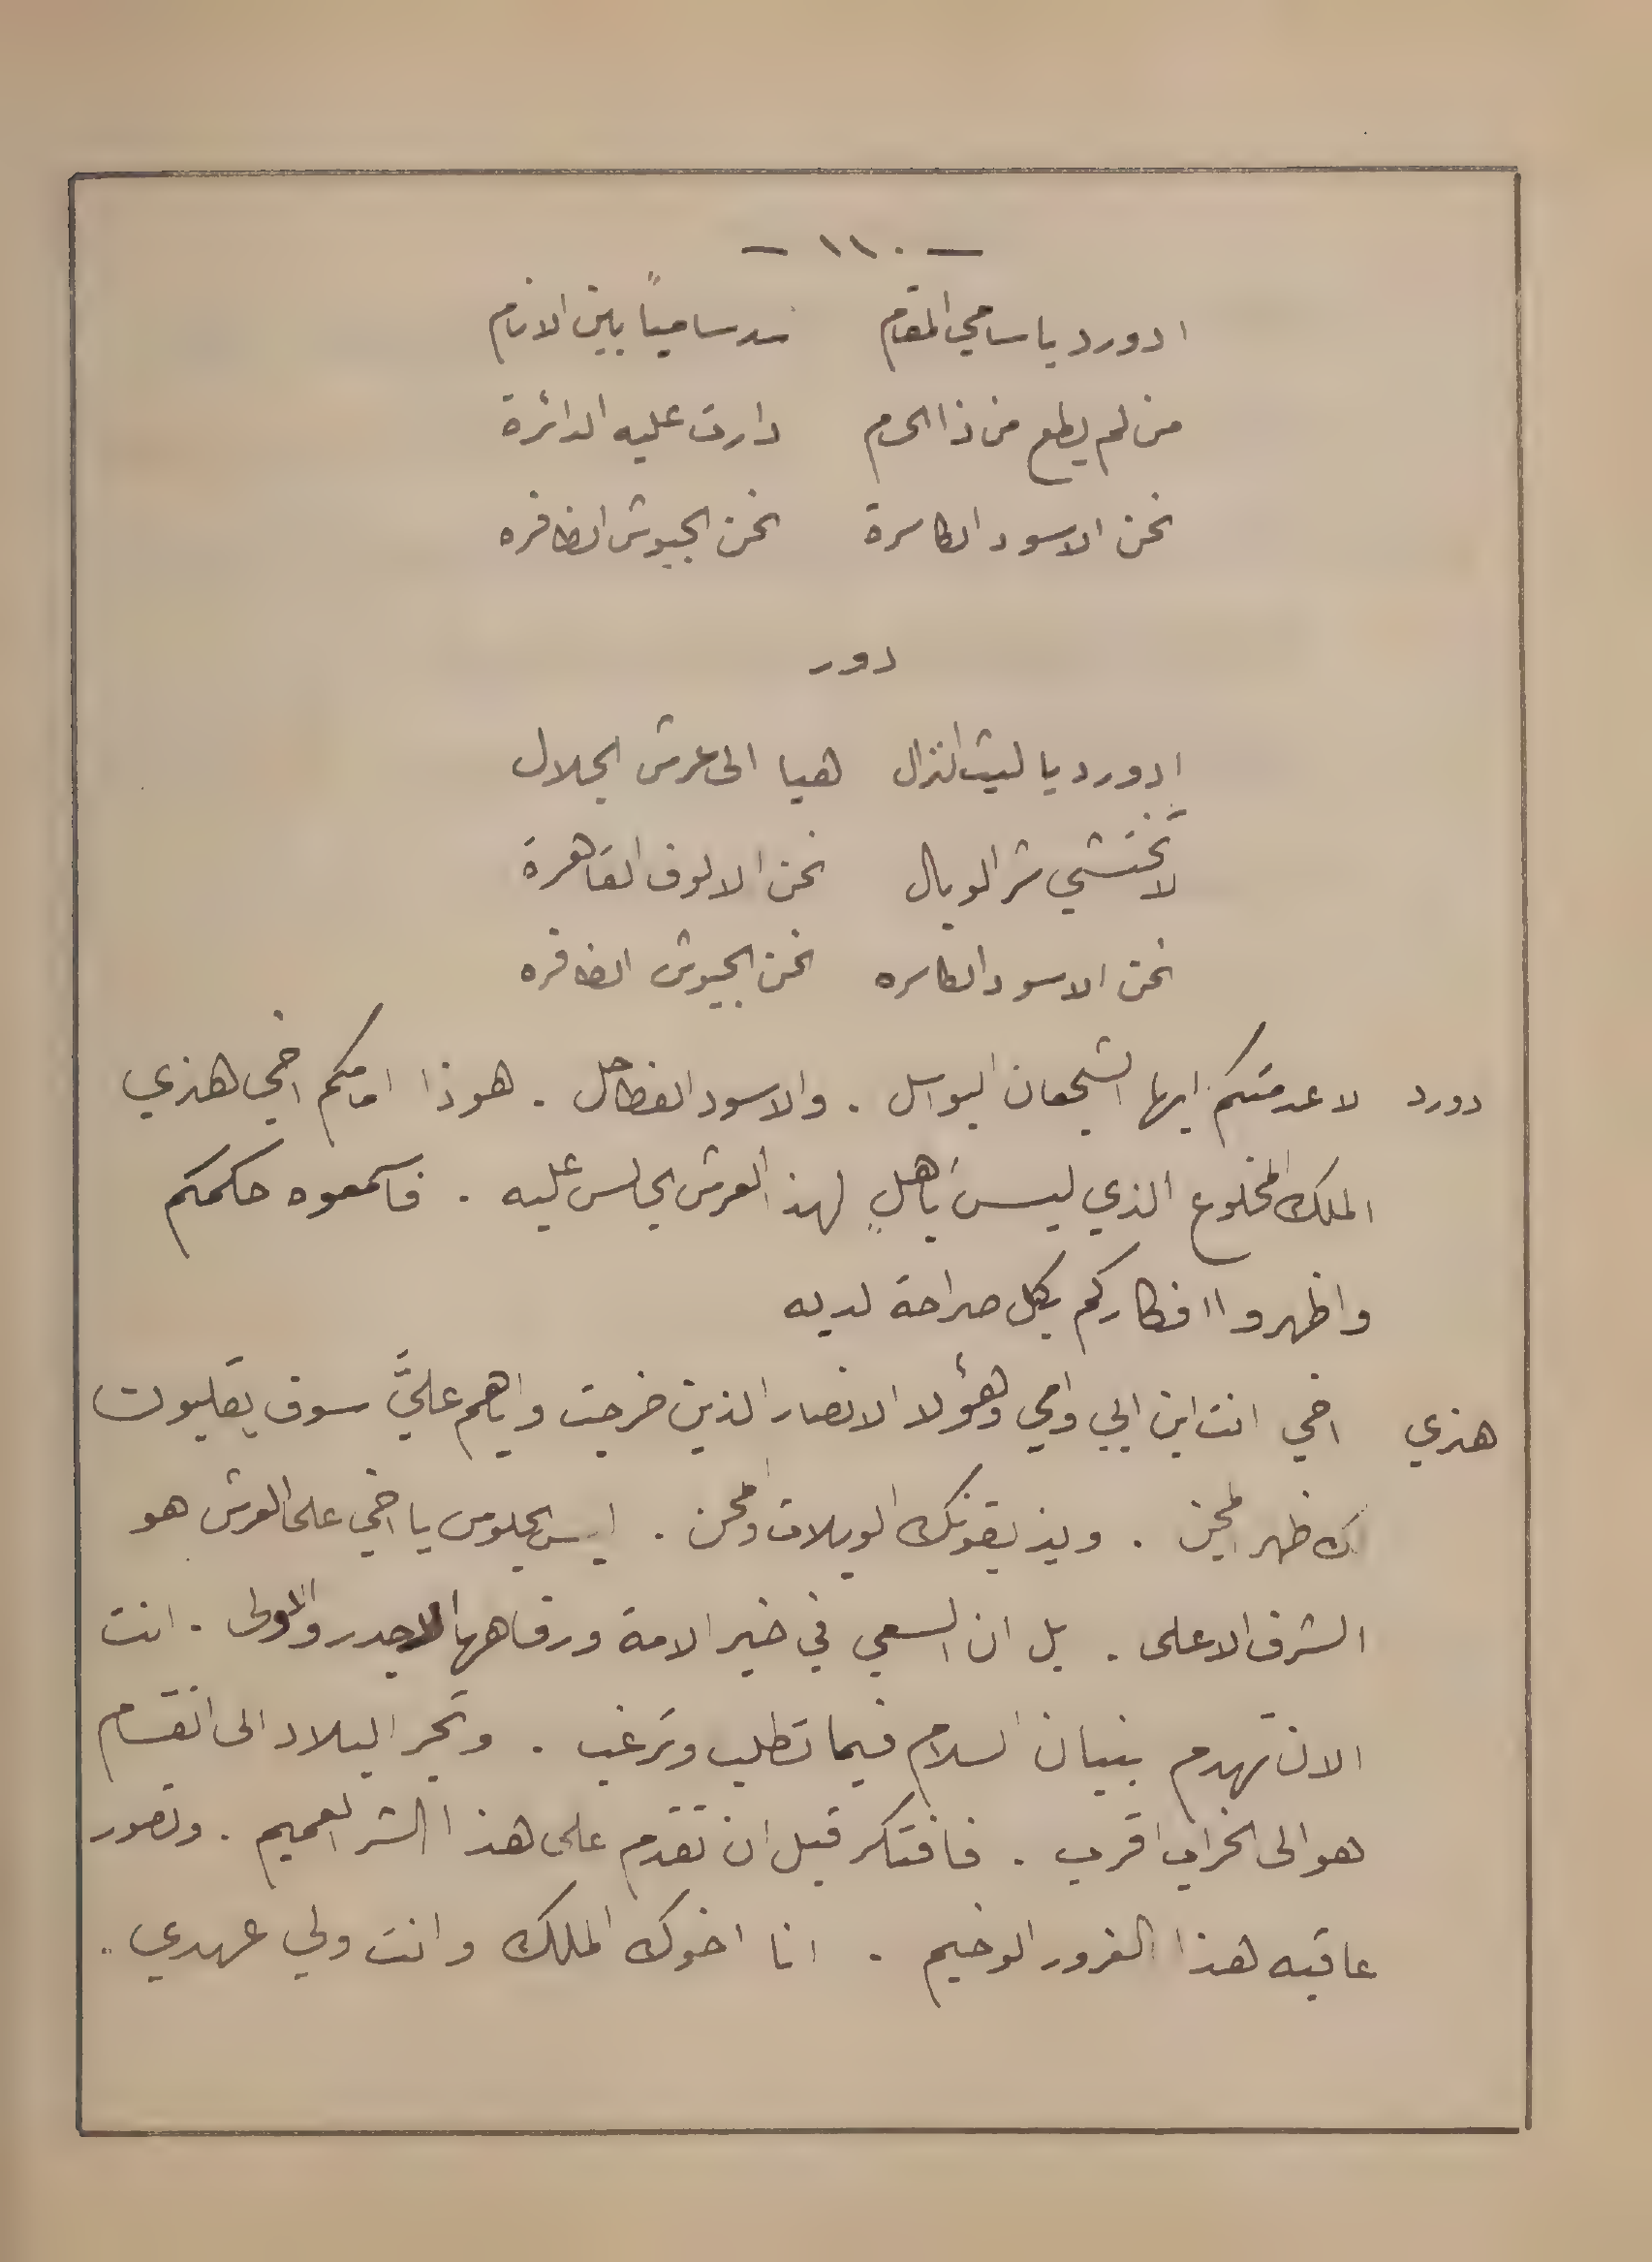 - ١١٠ -
ادورد يا سامي المقام سد ساميًا بين الانام
من لم يطع من ذا الحرم دارت عليه الدائرة
نحن الاسود الكاسرة نحن الجيوش الظافره
دور
إدورد يا ليث النزال هيا الى عرش الجلال
لا تخشي شر الوبال نحن الالوف القاهرة
نحن الاسود الكاسره نحن الجيوش الظافره
دورد لا عدمتكم ايها الشجعان البواسل . والاسود الفطاحل . هوذا امامكم اخي هنري
الملك المخلوع الذي ليس بأهلٍ لهذا العرش يجلس عليه . فاسمعوه حكمكم
واظهروا افكاركم بكل صراحة لديه
هنري اخي انت ابن ابي وامي وهؤلا الانصار الذين خرجت واياهم عليَّ سوف يقلبون
لك ظهر المجن . ويذيقونك الويلات والمحن . ليس الجلوس يا اخي على العرش هو
الشرف الاعلى . بل ان السعي في خير الامة ورفاهها الاجدر والاولى . انت
الان تهدم بنيان السلام فيما تطلب وترغب . وتجر البلاد الى انقسام
هو الى الخراب اقرب . فافتكر قبل ان تقدم على هذا الشر العميم . وتصور
عاقبه هذا الغرور الوخيم . انا اخوك الملك وانت ولي عهدي ..